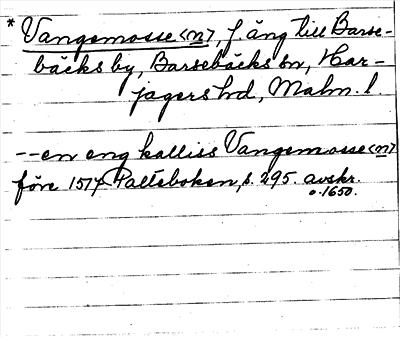 * Vangemosse<n>, f. äng till Barse-
bäcks by, Barsebäcks sn, Har-
jagers hd, Malm. l.
--en eng kalliss Vangemosse<n>
före 1514 Palteboken, s. 295. avskr.
o. 1650.